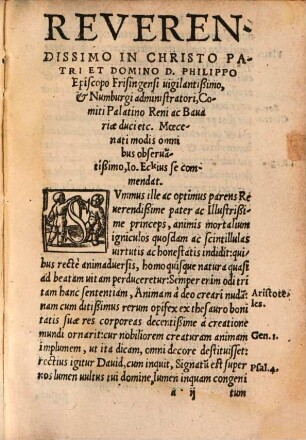 REVEREN-
DISSIMO IN CHRISTO PA-
TRI ET DOMINO D. PHILIPPO
Episcopo Frisingensi uigilantißimo,
& Numburgi administratori, Co-
miti Palatino Reni ac Baua
riæ duci etc. Mœce-
nati modis omni
bus obseruā-
tißimo, Io. Eckius se com-
mendat.
SVmmus ille ac optimus parens Re
uerendißime pater ac Illustriße-
me princeps, animis mortalium
igniculos quosdam ac scintillulas
uirtutis ac honestatis indidit: qui-
bus rectè animaduersis, homo quisque natura quasi
ad beatam uitam perduceretur: Semper enim odi tri
tam hanc sententiam, Animam à deo creari nudā:
Aristote-
les.
nam cum ditißimus rerum opifex ex thesauro boni
tatis suæ res corporeas decentißime à creatione
mundi ornarit: cur nobiliorem creaturam animam
Gen. 1.
implumem, ut ita dicam, omni decore destituisset:
rectius igitur Dauid, cum inquit, Signatū est super
Psal. 4.
nos lumen uultus tui domine, lumen inquam congeni
a ij
tum